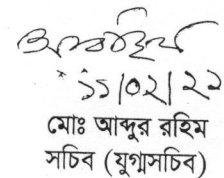 ১১/০২/২২
মোঃ আব্দুর রহিম
সচিব (যুগ্মসচিব)